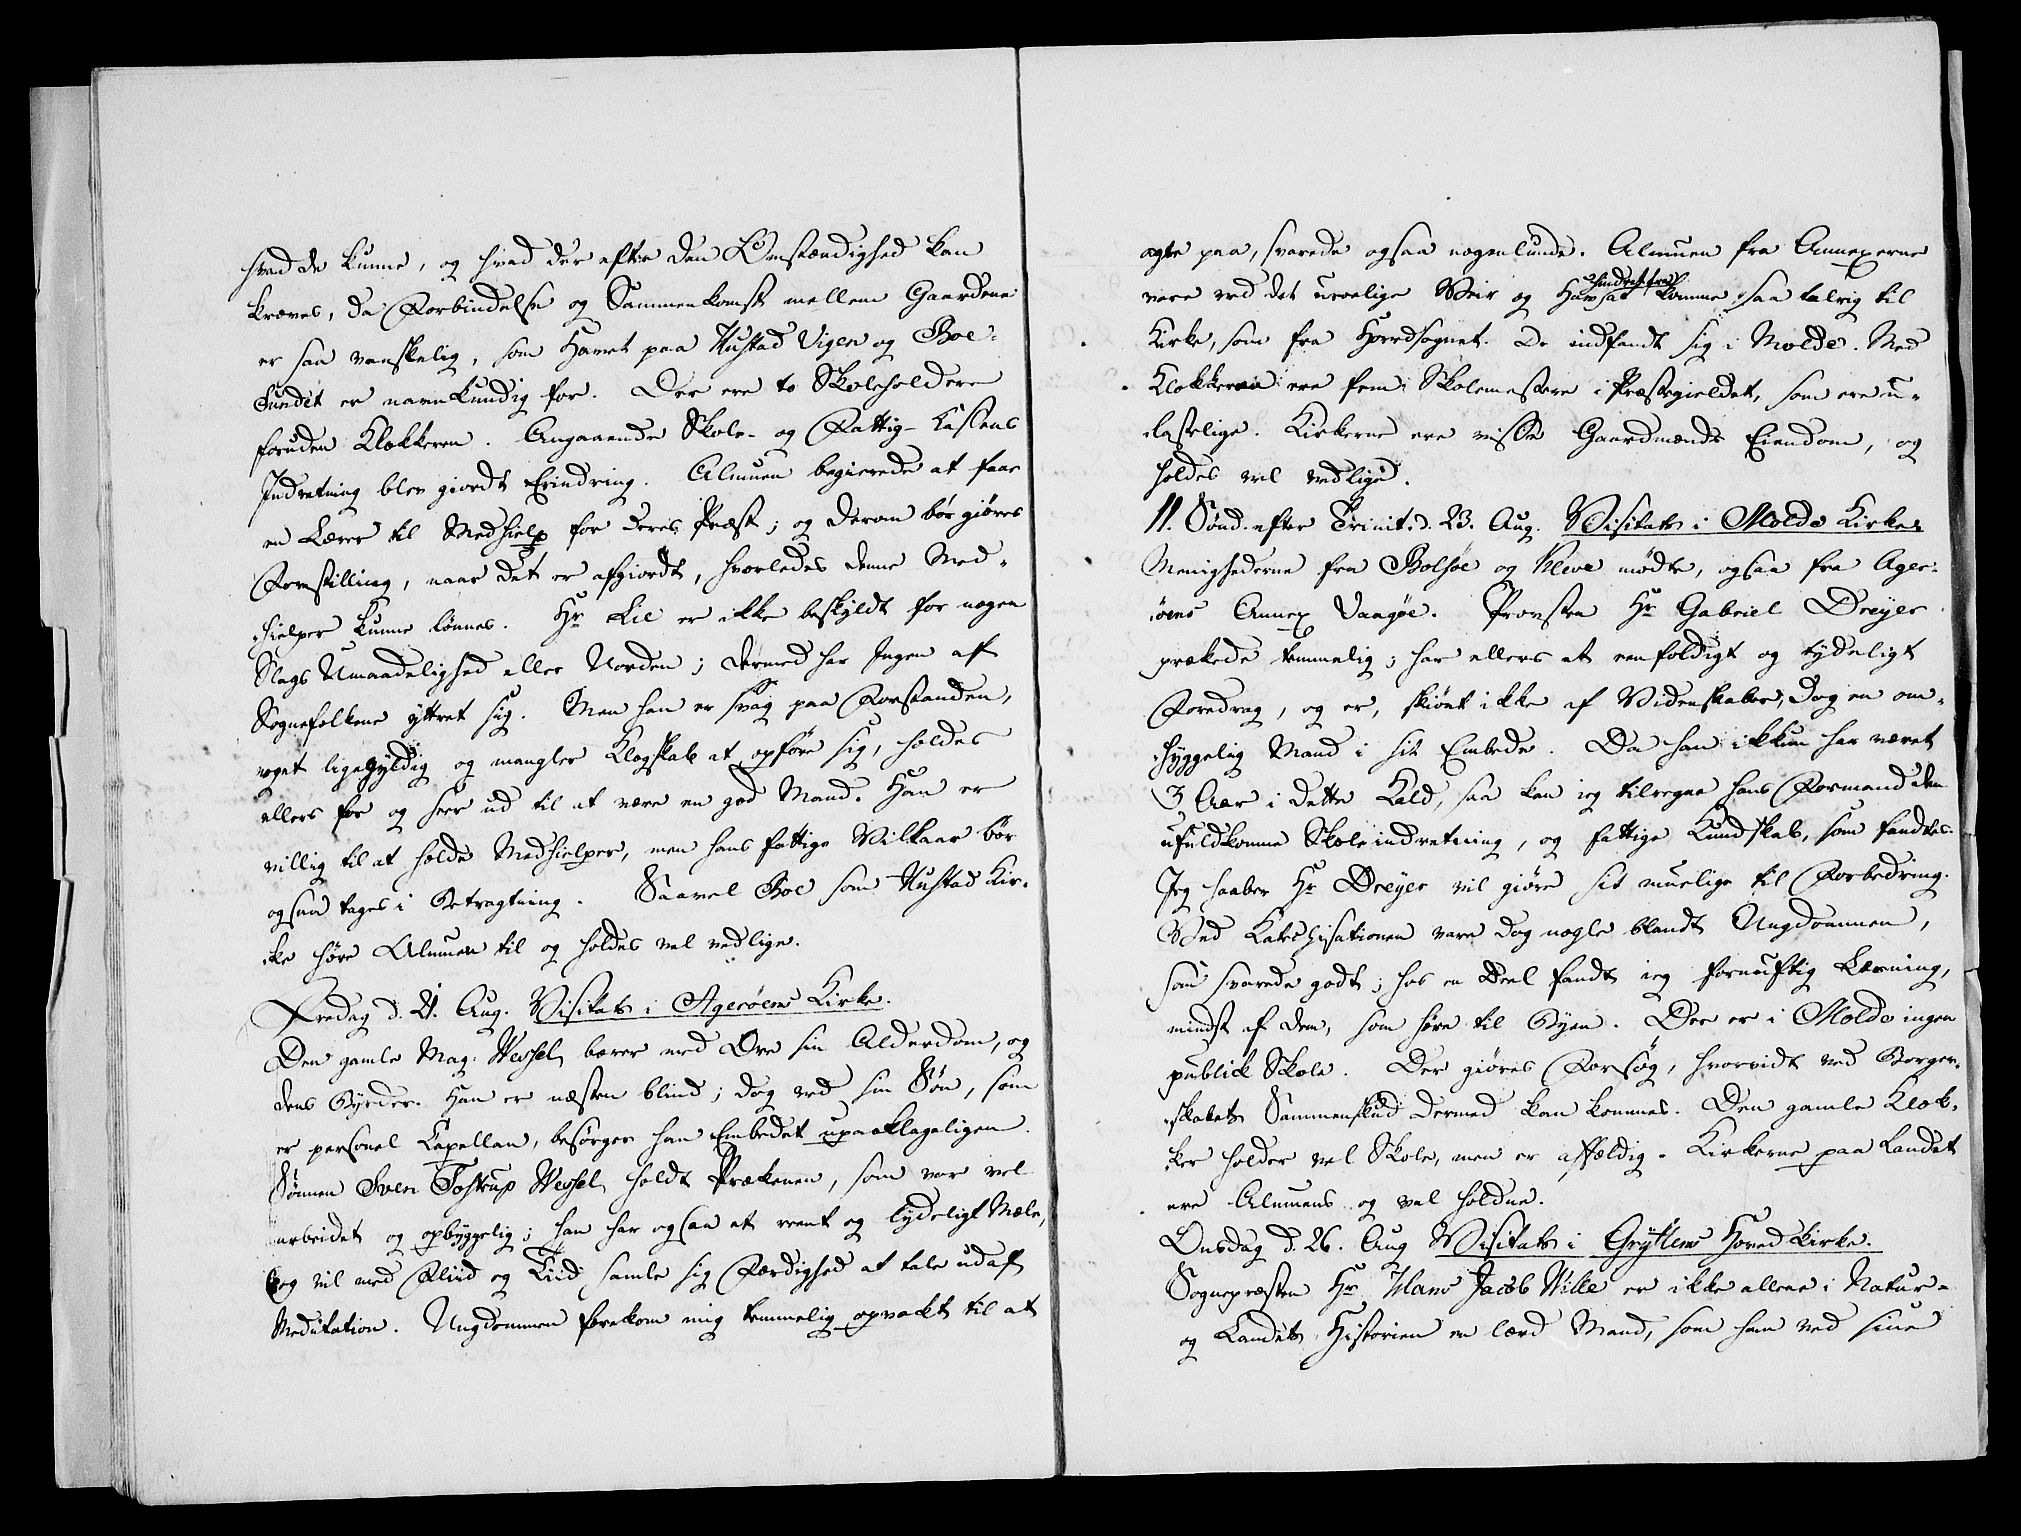 hvad de kunne, og hvad der efter den Omstændighed kan
kræves, da Forbindelse og Sammenkomst mellem Gaardene
er saa vanskelig, som Havet paa Hustad Vigen og Boe-
Sundet er navnkundig for. Der ere to Skoleholdere
foruden Klokkeren. Angaaende Skole- og Fattig-Kassens
Indretning blev giordt Erindring. Almuen begierede at faae
en Lærer til Medhielp for deres Præst; og derom bør giøres
Forestilling, naar det er afgiordt, hvorledes denne Med-
hielper kunne lønnes. Hr Lie er ikke beskyldt for nogen
Slags Umaadelighed eller Uorden; dermed har Ingen af
Sognefolkene yttret sig. Men han er svag paa Forstanden,
noget ligegyldig og mangler Klogskab at opføre sig, holdes
ellers for og seer ud til at være en god Mand. Han er
villig til at holde Medhielper, men hans fattige Vilkaar bør
ogsaa tages i Betragtning. Saavel Boe som Hustad Kir-
ke høre Almuen til og holdes vel vedlige.
Fredag d. 21. Aug. Visitats i Agerøens Kirke.
Den gamle Mag. Wessel bærer med Ære sin Alderdom, og
dens Byrder. Han er næsten blind; dog ved sin Søn, som
er personel Capellan, besørger han Embedet upaaklageligen.
Sønnen Sven Tostrup Wessel holdt Prækenen, som var vel
arbeidet og opbyggelig; han har ogsaa et reent og tydeligt Mæle,
og vil med Fliid og Tiid samle sig Færdighed at tale udaf
Meditation. Ungdommen forekom mig temmelig opvakt til at
agte paa, svarede ogsaa nogenlunde. Almuen fra Annexerne
vare ved det uroelige Veir og Havsat hindret fra at komme saa talrig til
Kirke, som fra Hovedsognet. De indfandt sig i Molde. Med
Klokkerne ere fem Skolemestere i Præstegieldet, som ere u-
lastelige. Kirkerne ere visse Gaardmænds Eiendom, og
holdes vel vedlige.
11. Sønd. efter Trinit. d. 23. Aug. Visitats i Molde Kirke.
Menighederne fra Bolsøe og Kleve mødte, ogsaa fra Ager-
øens Annex Vaagøe. Provsten Hr Gabriel Dreyer
prækede temmelig; har ellers et eenfoldigt og tydeligt
Foredrag, og er, skiønt ikke af Videnskaber, dog en om-
hyggelig Mand i sit Embede. Da han ikkun har været
3 Aar i dette Kald, saa kan ieg tilregne hans Formand den
ufuldkomne Skoleindretning, og fattige Kundskab, som fandtes.
Jeg haaber Hr Dreyer vil giøre sit muelige til Forbedring.
Ved Katechisationen vare dog nogle blandt Ungdommen,
som svarede godt; hos en Deel fandt ieg fornuftig Læsning,
mindst af dem, som høre til Byen. Der er i Molde ingen
publick Skole. Der giøres Forsøg, hvorvidt ved Borger-
skabets Sammenskud dermed kan kommes. Den gamle Klok-
ker holder vel Skole, men er affældig. Kirkerne paa Landet
ere Almuens og vel holdne.
Onsdag d. 26. Aug Visitats i Gryttens Hoved Kirke.
Sognepræsten Hr Hans Jacob Wille er ikke allene i Natur-
og Landets Historien en lærd Mand, som han ved sine